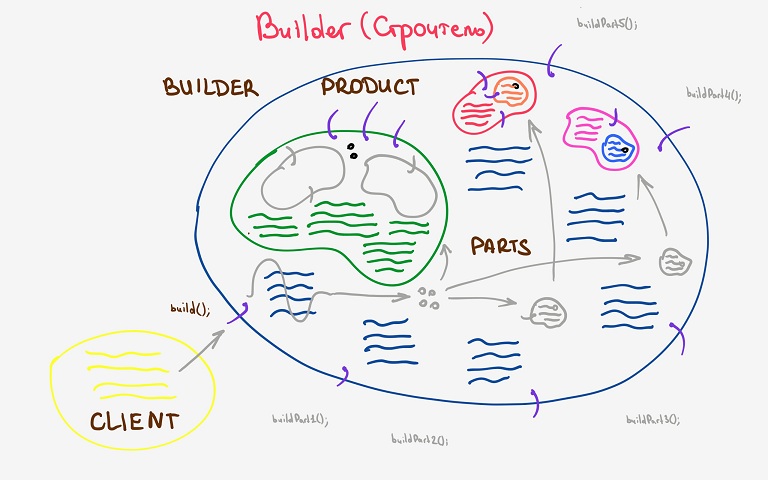 Builder (Строитель)
buildPart5();
BUILDER
PRODUCT
buildPart4();
PARTS
build();
CLIENT
buildPart1();
buildPart2();
buildPart3();